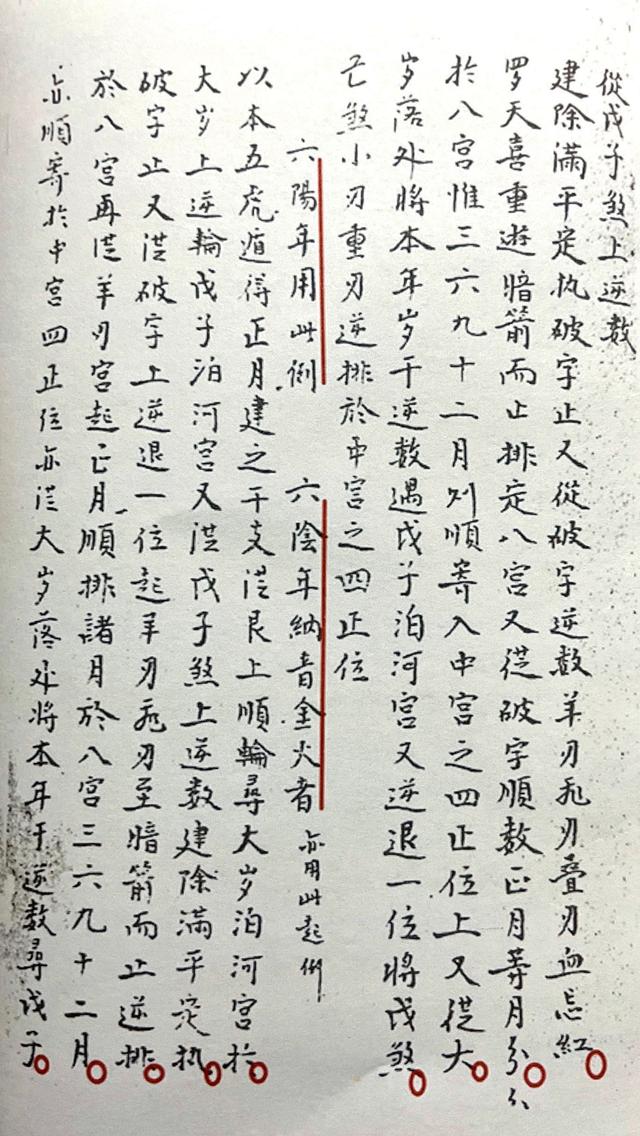 從戊子煞上逆數
建除滿平定执破字止又從破字逆数羊刃飛刃叠刃血忌紅
罗天喜重遊暗箭而止排定八宮又從破字順数正月等月分
於八宮惟三六九十二月则順寄入中宮之四正位上又從大
岁落处將本年岁干逆数遇戊子泊河宮又逆退一位將戊煞
亡煞小刃重刃逆排於中宮之四正位
六陽年用此例 六陰年納音金火者 亦用此起例
以本五虎遁得正月建之干支從艮上順輪尋大岁泊河宮於
大岁上逆輪戊子泊河宮又從戊子煞上逆数建除滿平定执
破字止又從破字上逆退一位起羊刃飛刃至暗箭而止逆排
於八宮再從羊刃宮起正月順排諸月於八宮三六九十二月
亦順寄於中宮四正位亦從大岁落处將本年干逆数尋戊子